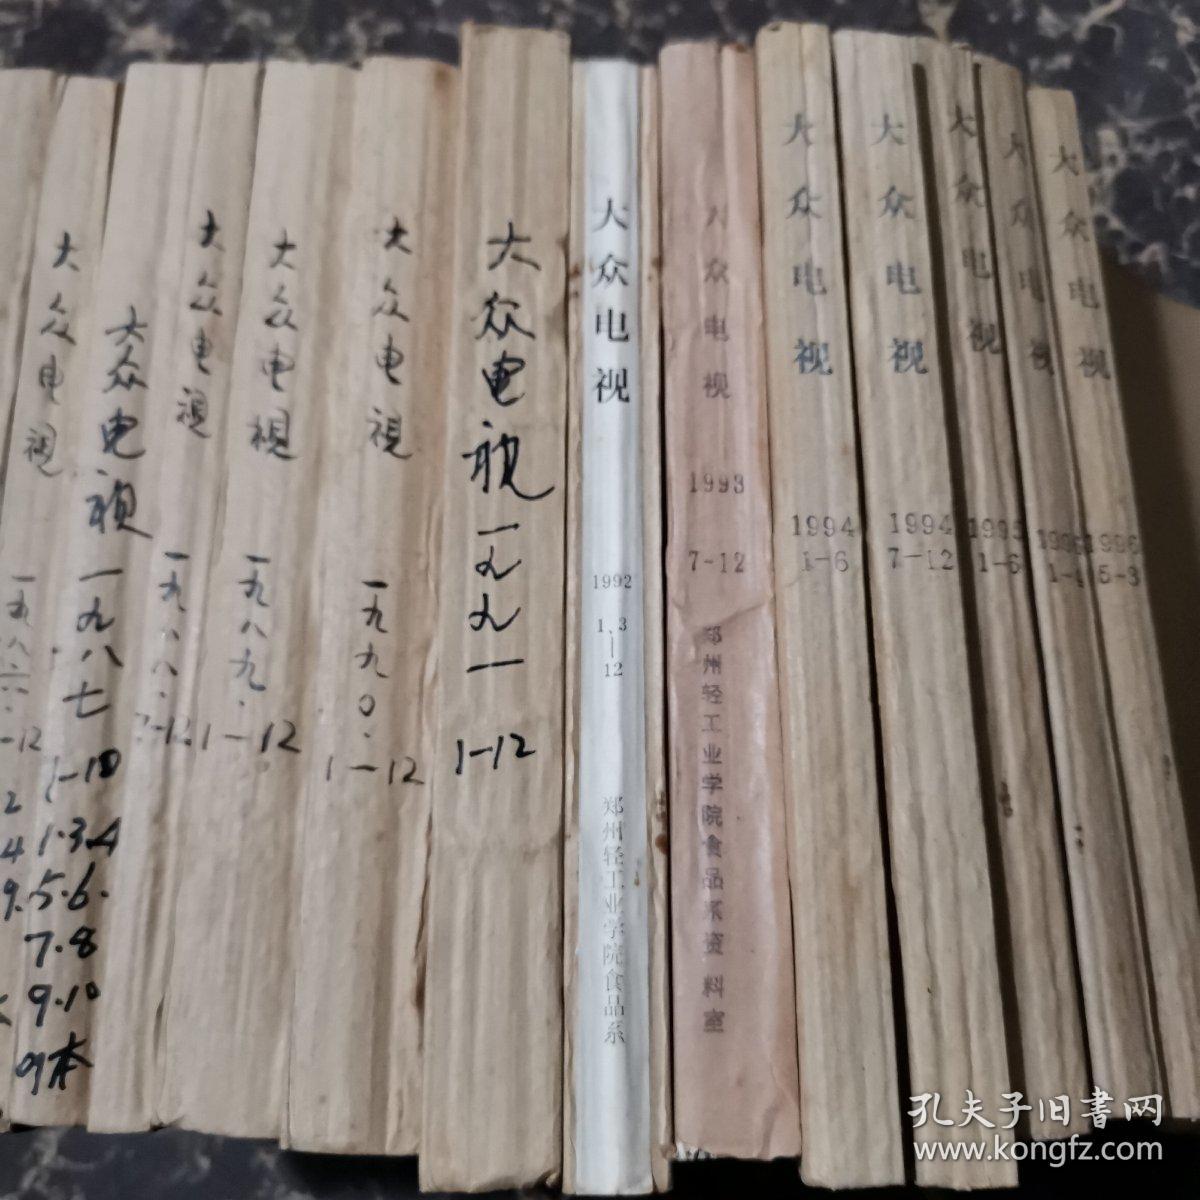 大众电视
一九八六.
-12
2
4
9.
大众电视
一九八七
1-10
1.3.4
5.6.
7.8
9.10
9本
大众电视
一九八八.
7-12
大众电视
一九八九.
1-12
大众电视
一九九0.
1-12
大众电视
一九九一
1-12
大众电视
1992
1.3
|
12
郑州轻工业学院食品系
大众电视
1993
7-12
郑州轻工业学院食品系资料室
大众电视
1994
1-6
大众电视
1994
7-12
大众电视
1995
1-6
大众电视
1996
1-4
大众电视
1996
5-8
孔夫子旧書网
www.kongfz.com